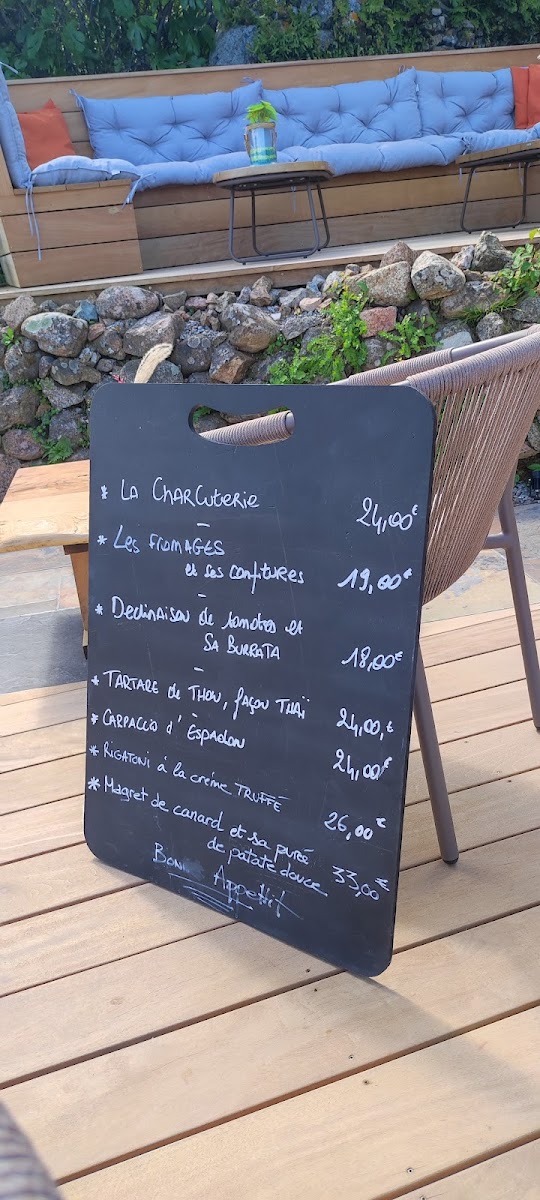 * La Charcuterie 24,00€
-
* Les FROMAGES
et ses confitures 19,00€
-
* Declinaison de tomates et
SA BURRATA 18,00€
-
* TARTARE de THON, façon THAÏ 24,00,€
-
* CARPACCIO d'ESPADON 24,00€
* RIGATONI à la crème TRUFFE 26,00€
* Magret de canard et sa purée
de patate douce 33,00€
Bon Appetit